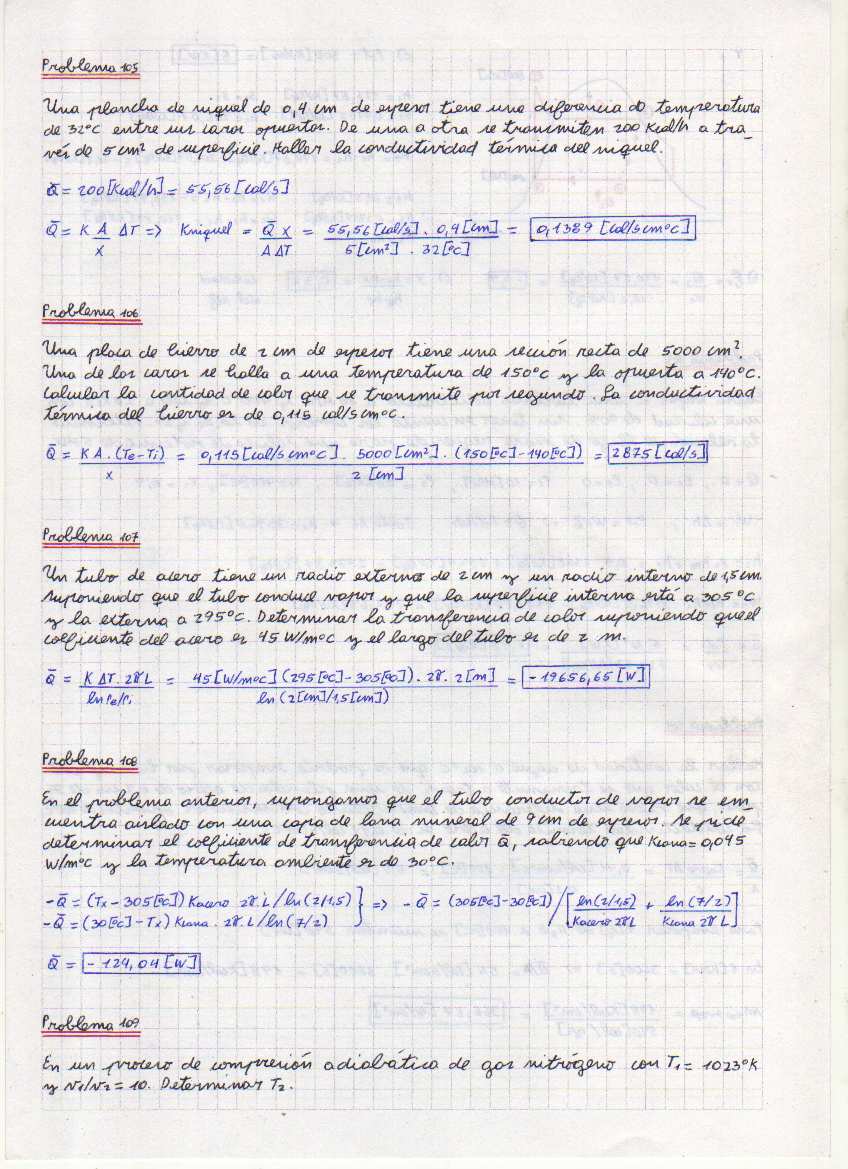 Problema 105
Una plancha de niquel de 0,4 cm de espesor tiene una diferencia de temperatura
de 32°C entre sus caras opuestas. De una a otra se transmiten 200 Kcal/h a tra-
vés de 5 cm² de superficie. Hallar la conductividad térmica del niquel.
Q̄ = 200 [Kcal/h] = 55,56 [cal/s]
Q̄ = K A/X ΔT => Kniquel = Q̄ X / A ΔT = 55,56 [cal/s] . 0,4 [cm] / 5 [cm²] . 32 [°C] = 0,1389 [cal/s cm°C]
Problema 106
Una placa de hierro de 2 cm de espesor tiene una sección recta de 5000 cm².
Una de las caras se halla a una temperatura de 150°C y la opuesta a 140°C.
Calcular la cantidad de calor que se transmite por segundo. La conductividad
térmica del hierro es de 0,115 cal/s cm°C.
Q̄ = K A . (Te - Ti) / X = 0,115 [cal/s cm°C] . 5000 [cm²] . (150 [°C] - 140 [°C]) / 2 [cm] = 2875 [cal/s]
Problema 107
Un tubo de acero tiene un radio externo de 2 cm y un radio interno de 1,5 cm.
Suponiendo que el tubo conduce vapor y que la superficie interna está a 305°C
y la externa a 295°C. Determinar la transferencia de calor suponiendo que el
coeficiente del acero es 45 W/m°C y el largo del tubo es de 2 m.
Q̄ = K ΔT . 2π L / ln re/ri = 45 [W/m°C] (295 [°C] - 305 [°C]) . 2π . 2 [m] / ln (2 [cm]/1,5 [cm]) = - 19656,65 [W]
Problema 108
En el problema anterior, supongamos que el tubo conductor de vapor se en-
cuentra aislado con una capa de lana mineral de 9 cm de espesor. Se pide
determinar el coeficiente de transferencia de calor Q̄, sabiendo que Klana = 0,045
W/m°C y la temperatura ambiente es de 30°C.
-Q̄ = (Tx - 305 [°C]) Kacero 2π . L / ln (2/1,5) } => - Q̄ = (305 [°C] - 30°C]) / [ ln (2/1,5) / Kacero 2π L + ln (7/2) / Klana 2π L ]
-Q̄ = (30 [°C] - Tx) Klana . 2π . L / ln (7/2)
Q̄ = - 124,04 [W]
Problema 109
En un proceso de compresión adiabática de gas nitrógeno con T1 = 1023°K
y v1/v2 = 10. Determinar T2.